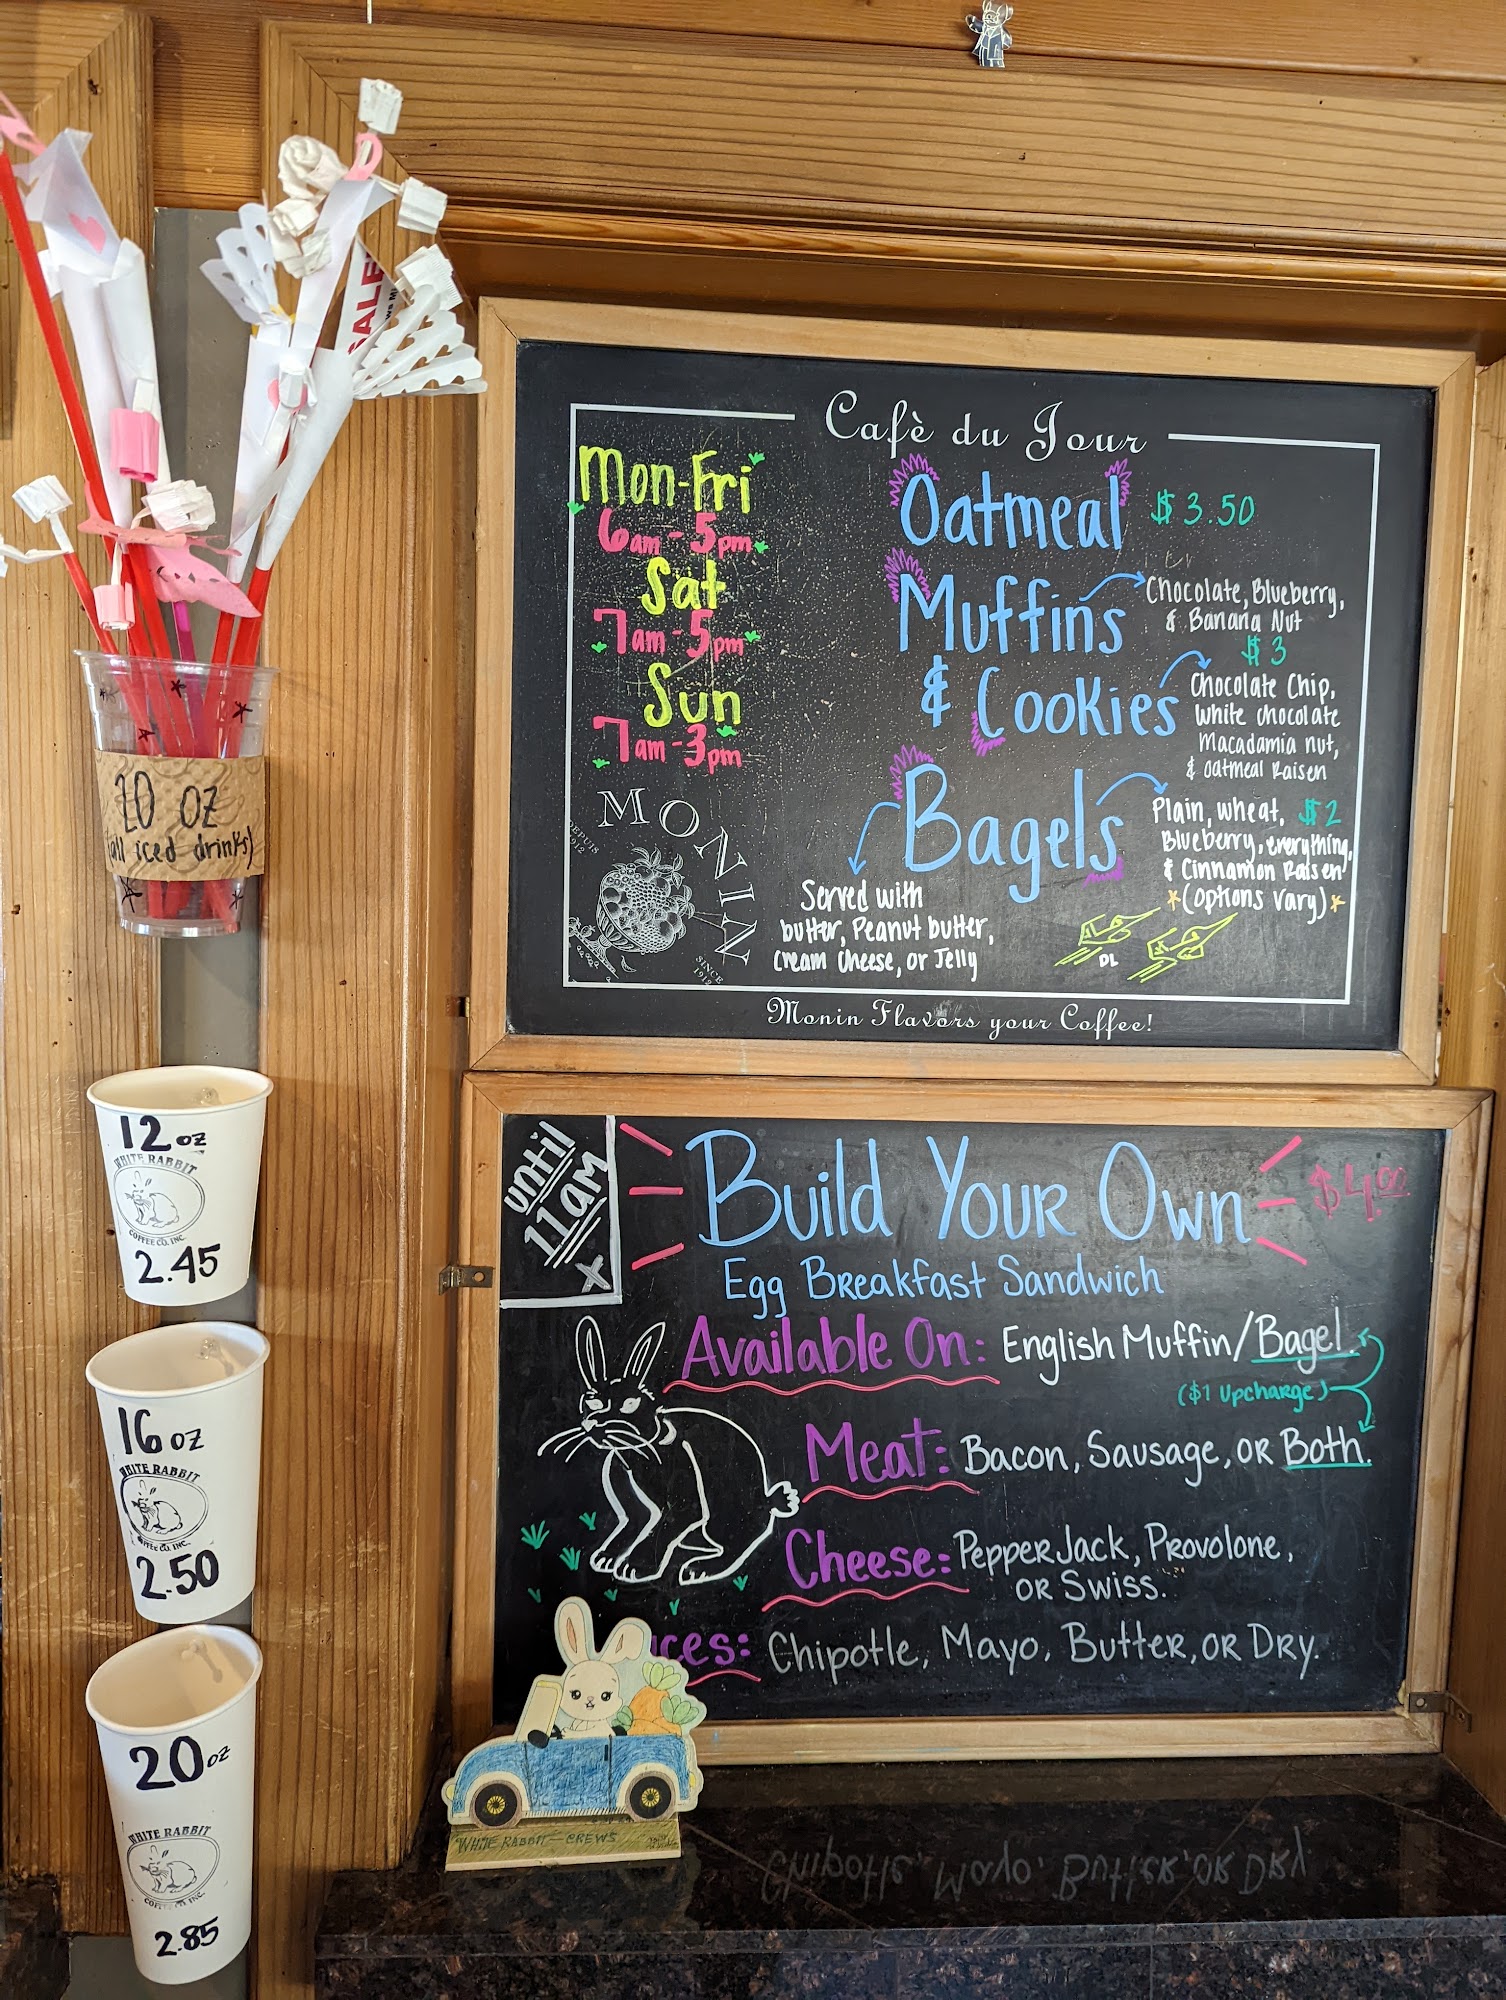 SALE
20 oz
(all iced drinks)
12 oz
WHITE RABBIT
COFFEE CO. INC.
2.45
16 oz
WHITE RABBIT
COFFEE CO. INC.
2.50
20 oz
WHITE RABBIT
COFFEE CO. INC.
2.85
Cafè du Jour
Mon-Fri
6am-5pm
Sat
7am-5pm
Sun
7am-3pm
MONIN
DEPUIS
1912
SINCE
1912
Oatmeal $3.50
Muffins
Chocolate, Blueberry,
& Banana Nut
$3
& Cookies
Chocolate Chip,
White Chocolate
Macadamia nut,
& Oatmeal Raisen
Bagels
Plain, wheat, $2
Blueberry, everything,
& Cinnamon Raisen
*(options vary)*
Served with
butter, Peanut butter,
Cream Cheese, or Jelly
DL
Monin Flavors your Coffee!
until
11am
x
Build Your Own $4.00
Egg Breakfast Sandwich
Available On: English Muffin/Bagel.
($1 Upcharge)
Meat: Bacon, Sausage, or Both.
Cheese: PepperJack, Provolone,
or Swiss.
ces: Chipotle, Mayo, Butter, or Dry.
WHITE RABBIT — CREWS